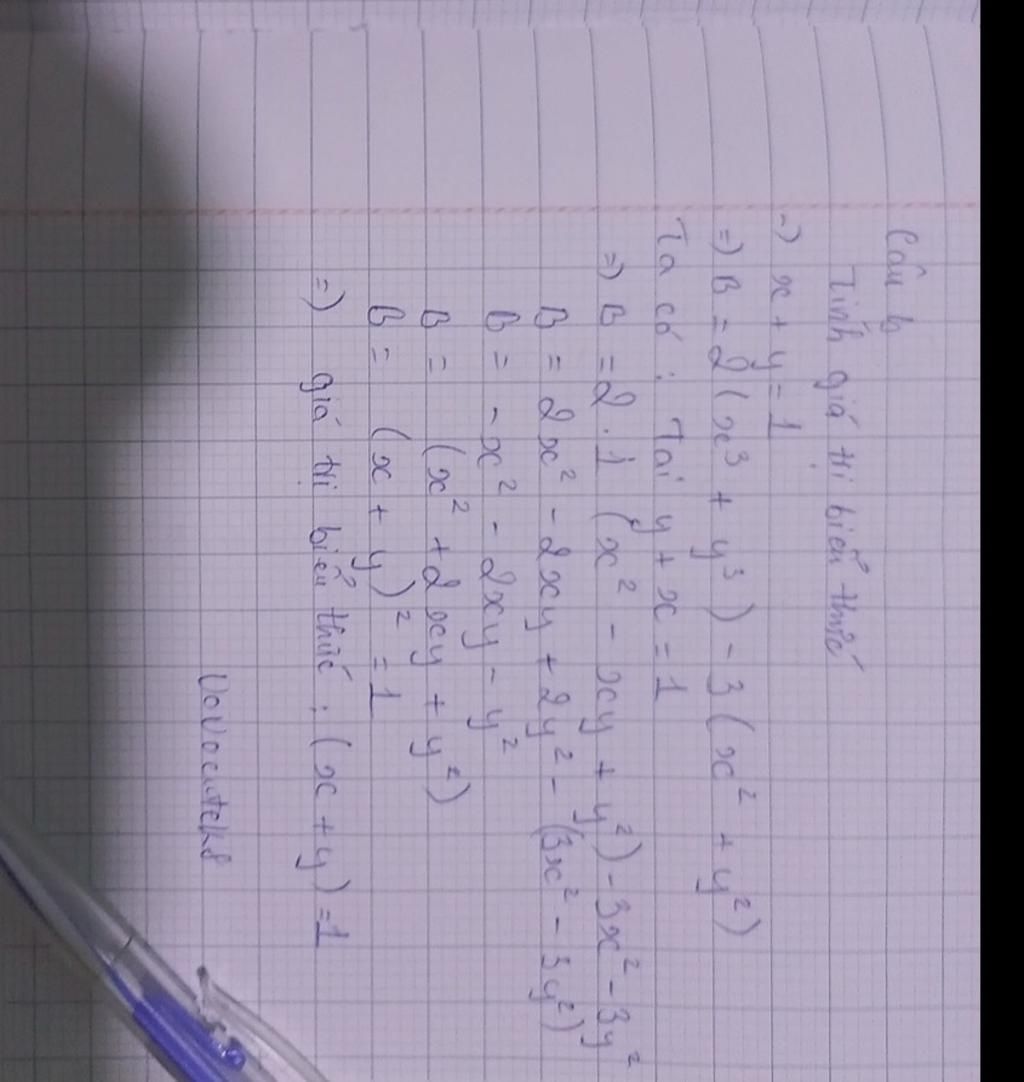 Câu b
Tính giá trị biểu thức
-) x + y = 1
=) B = 2 (x³ + y³) - 3 (x² + y²)
Ta có : Tại y + x = 1
=) B = 2 . 1 (x² - xy + y²) - 3x² - 3y²
B = 2x² - 2xy + 2y² - (3x² - 3y²)
B = - x² - 2xy - y²
B = (x² + 2xy + y²)
B = (x + y)² = 1
=) giá trị biểu thức : (x + y) = 1